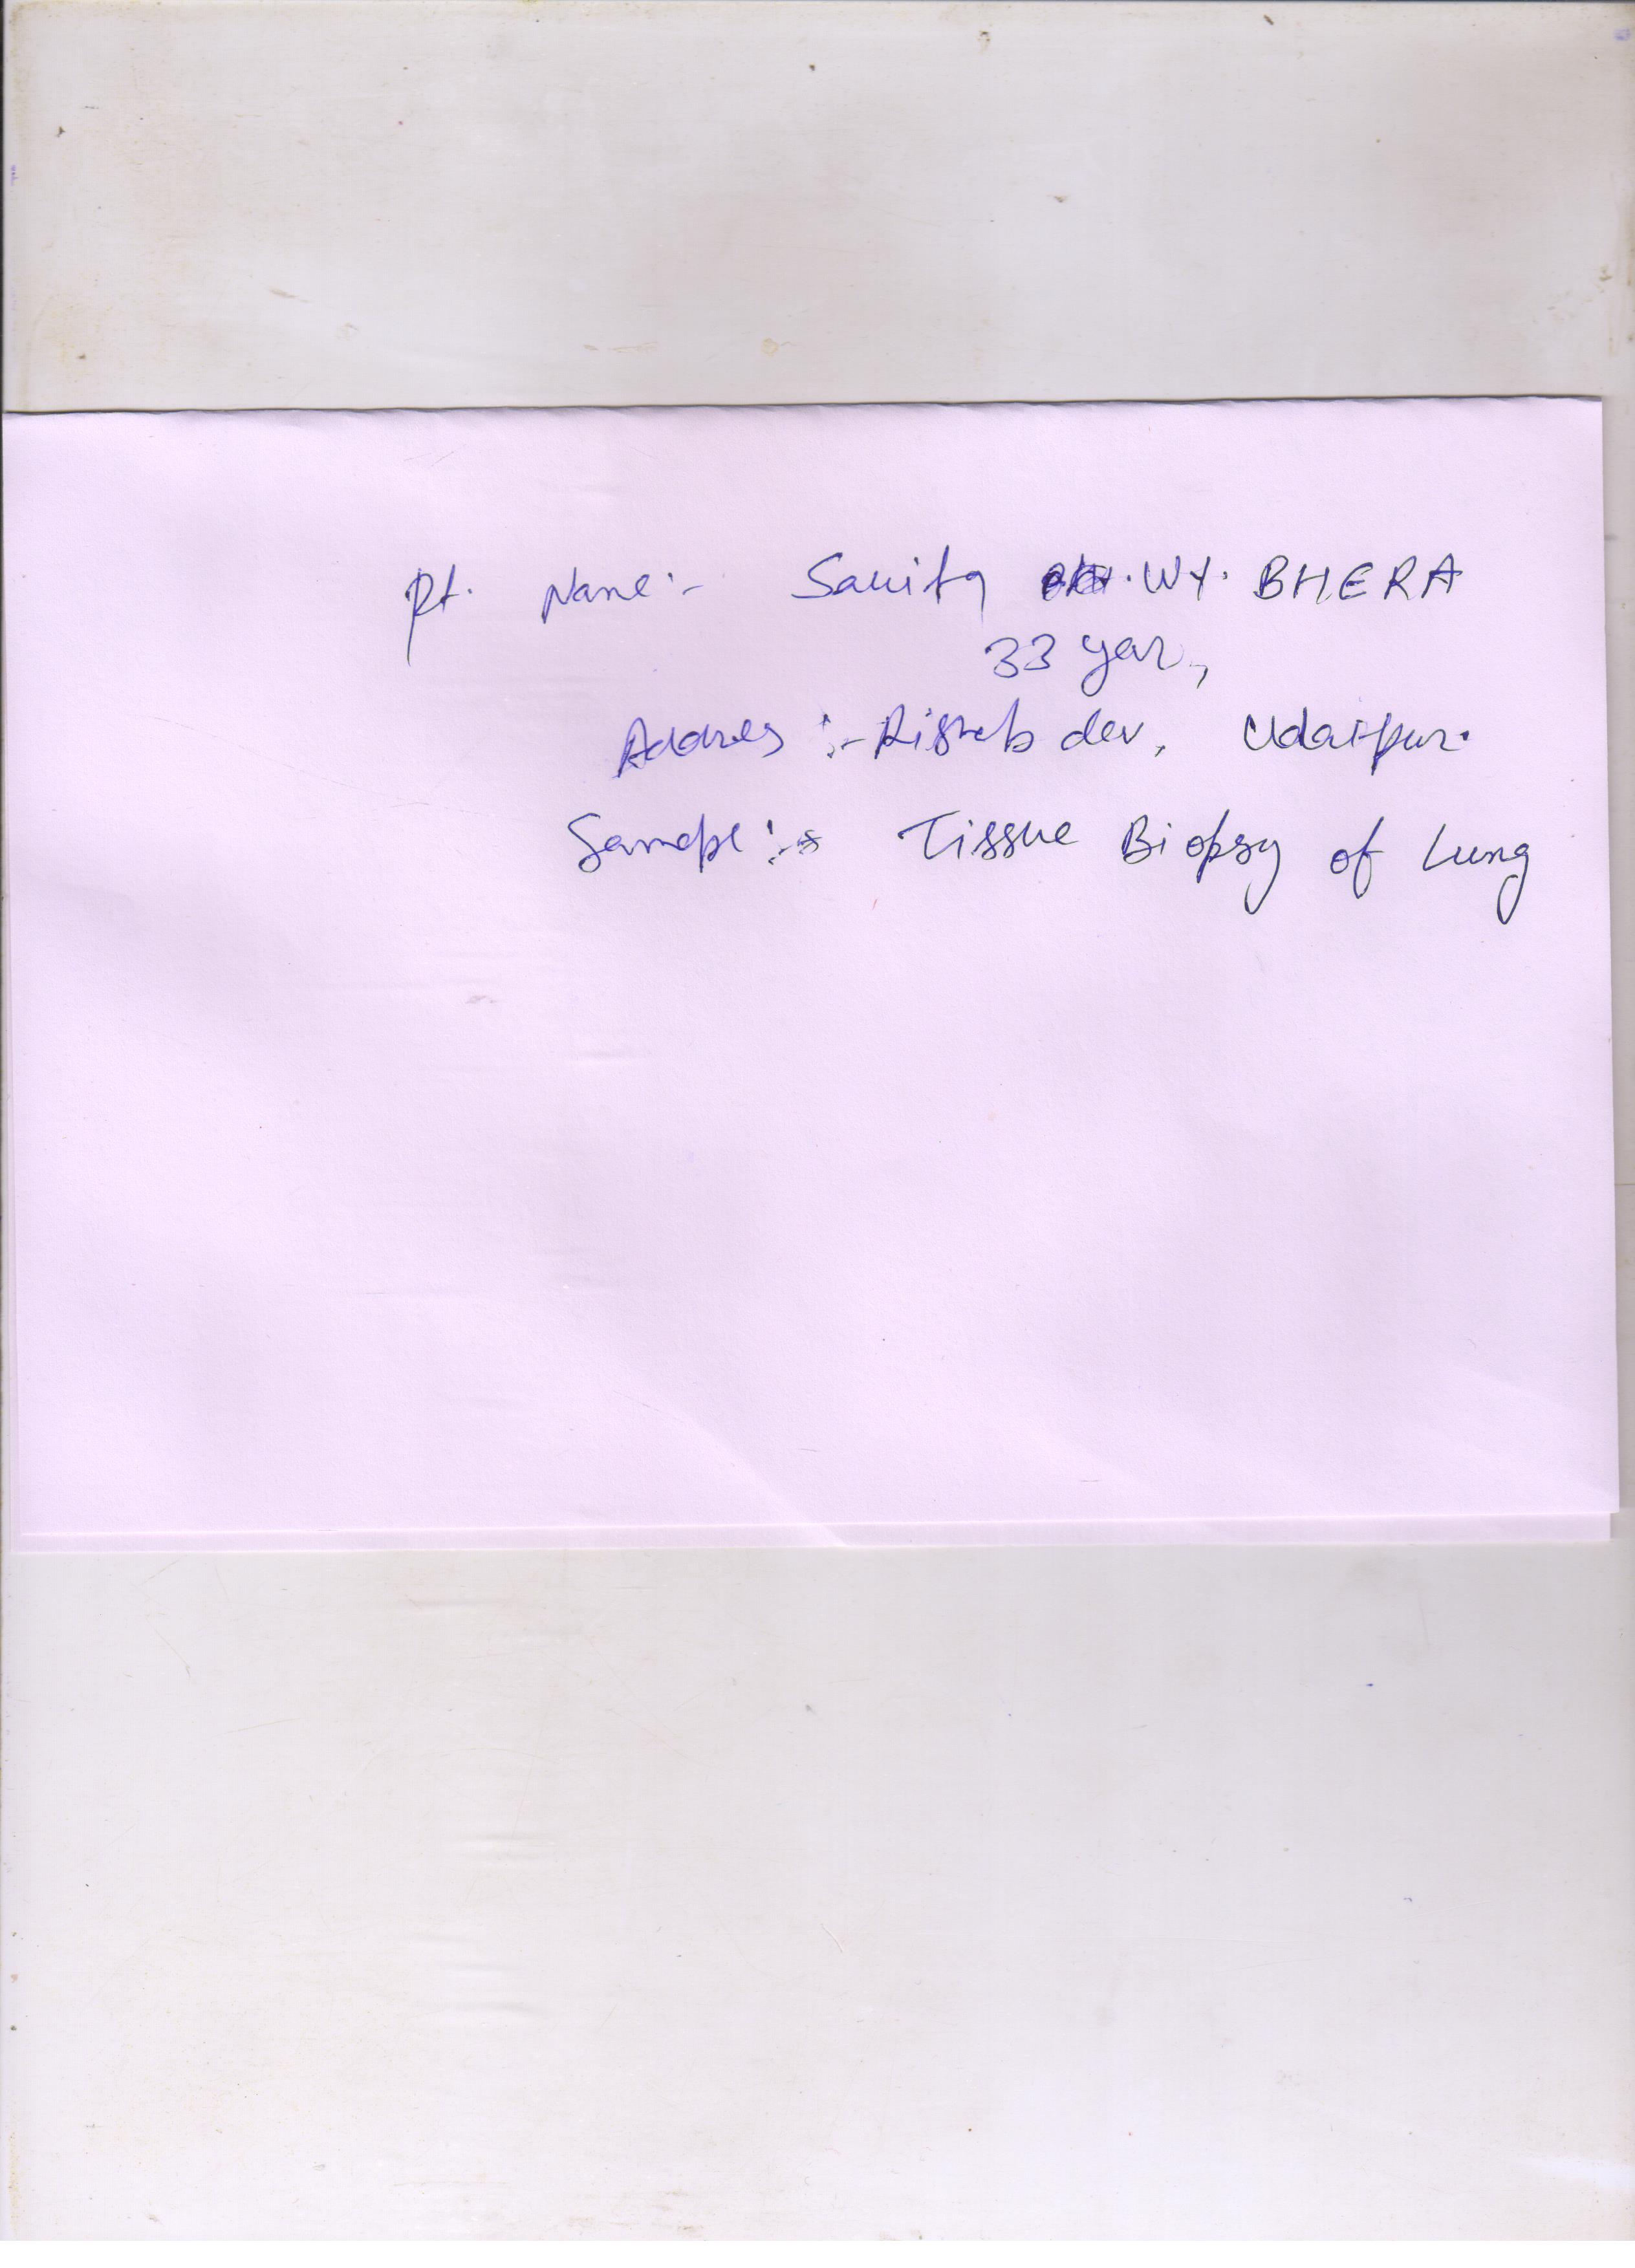 Pt. Name:- Savita W/. BHERA
33 year,
Addres :- Rishab dev, Udaipur.
Sample:- Tissue Biopsy of Lung